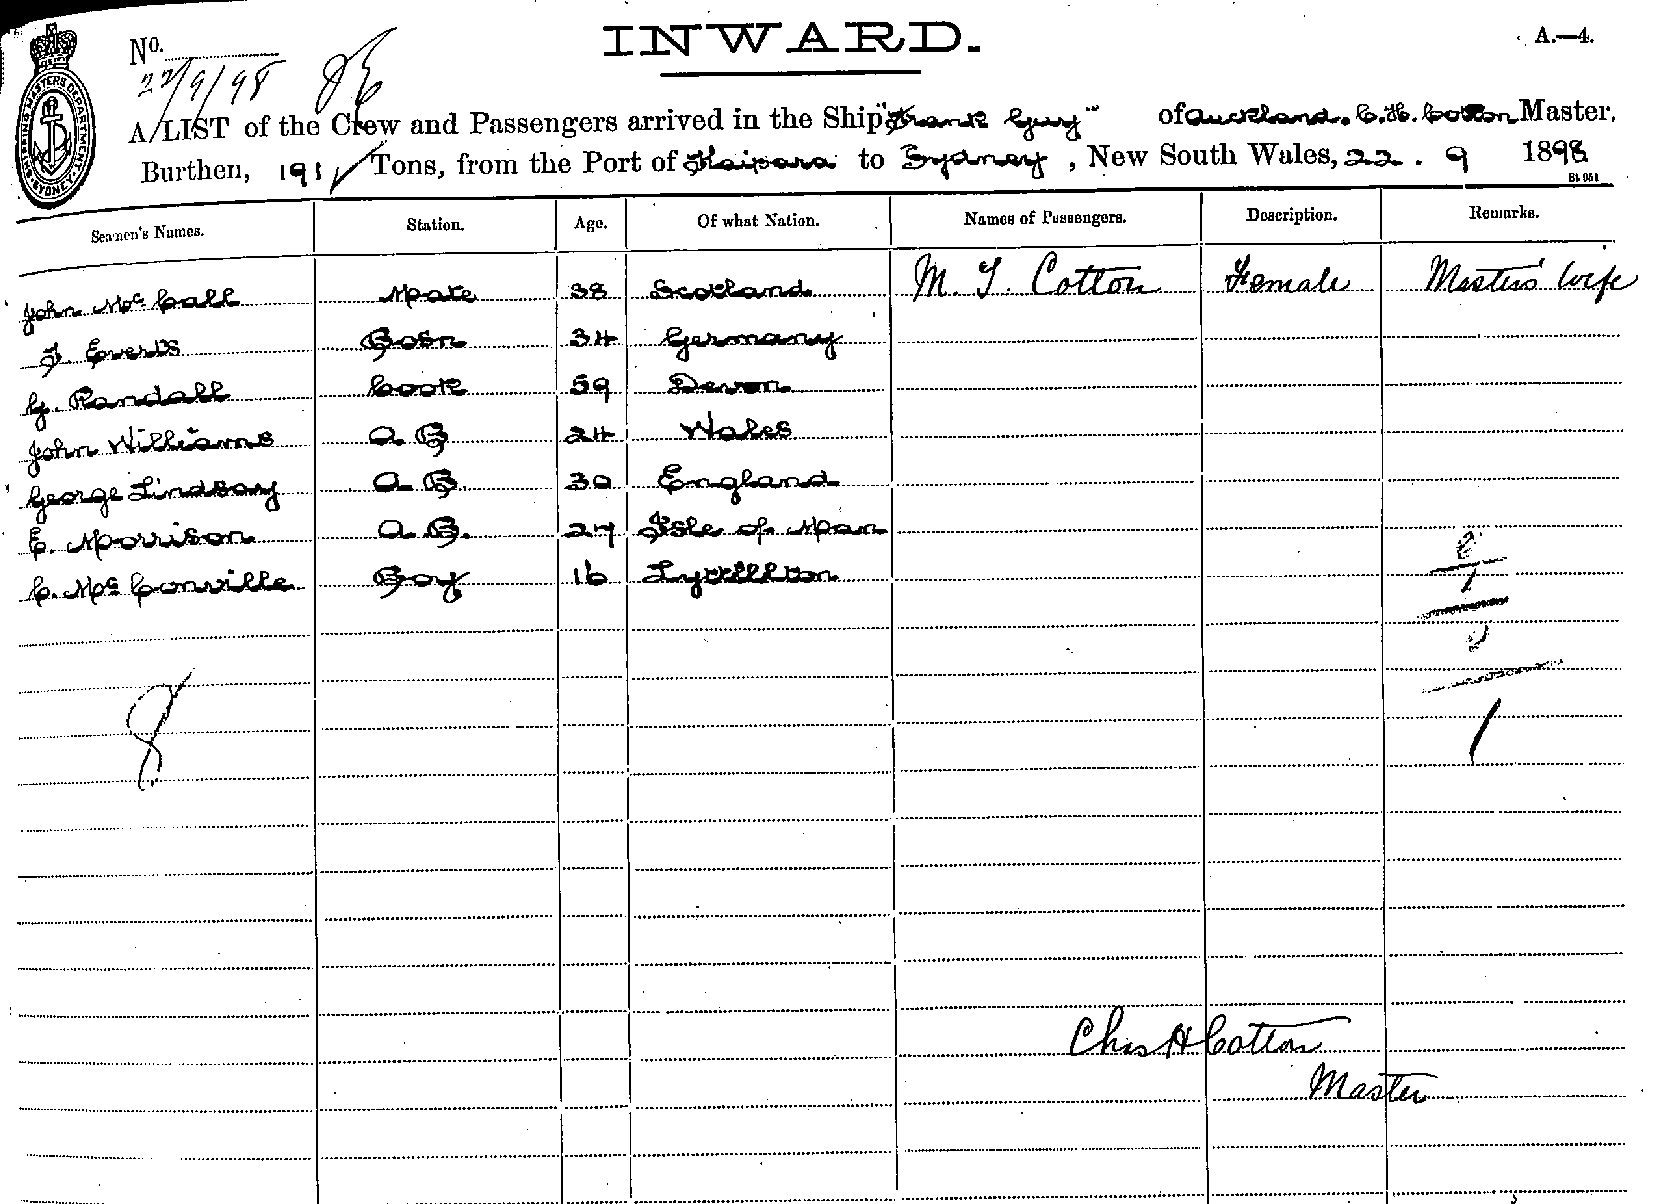 INWARD.
A.—4.
No.
22/9/98
A LIST of the Crew and Passengers arrived in the Ship "Frank Guy" of Auckland. C. H. Cotton Master,
Burthen, 191 Tons, from the Port of Kaipara to Sydney, New South Wales, 22 . 9 1898
Seamen's Names. Station. Age. Of what Nation. Names of Passengers. Description. Remarks.
John McCall Mate 38 Scotland M. T. Cotton Female Master's Wife
J. Everts Bosn 34 Germany
G. Randall Cook 59 Devon
John Williams A. B 24 Wales
George Lindsay A. B. 30 England
E. Morrison A. B. 27 Isle of Man
C. McConville Boy 16 Lyttellton
8
1
Chas H Cotton
Master